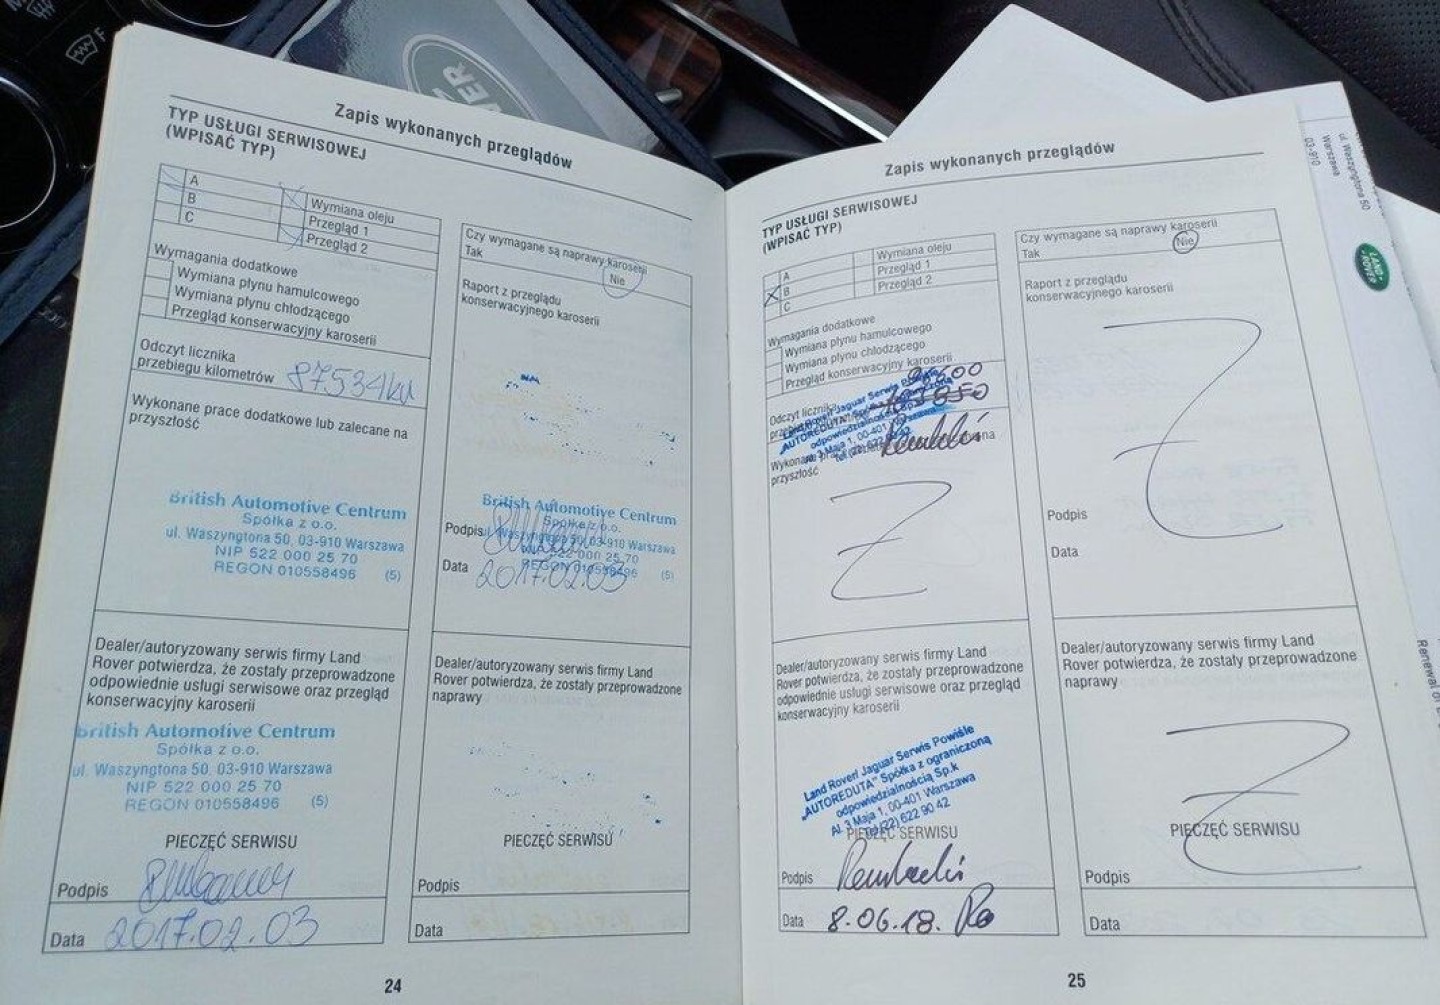 F
ROVER
Zapis wykonanych przeglądów
TYP USŁUGI SERWISOWEJ
(WPISAĆ TYP)
A
B
C
Wymiana oleju
Przegląd 1
Przegląd 2
Wymagania dodatkowe
Wymiana płynu hamulcowego
Wymiana płynu chłodzącego
Przegląd konserwacyjny karoserii
Odczyt licznika
przebiegu kilometrów 87534km
Wykonane prace dodatkowe lub zalecane na
przyszłość
British Automotive Centrum
Spółka z o.o.
ul. Waszyngtona 50, 03-910 Warszawa
NIP 522 000 25 70
REGON 010558496 (5)
Dealer/autoryzowany serwis firmy Land
Rover potwierdza, że zostały przeprowadzone
odpowiednie usługi serwisowe oraz przegląd
konserwacyjny karoserii
British Automotive Centrum
Spółka z o.o.
ul. Waszyngtona 50, 03-910 Warszawa
NIP 522 000 25 70
REGON 010558496 (5)
PIECZĘĆ SERWISU
Podpis
Data 2017.02.03
Czy wymagane są naprawy karoserii
Tak
Nie
Raport z przeglądu
konserwacyjnego karoserii
British Automotive Centrum
Spółka z o.o.
Podpis
ul. Waszyngtona 50, 03-910 Warszawa
NIP 522 000 25 70
REGON 010558496 (5)
Data 2017.02.03
Dealer/autoryzowany serwis firmy Land
Rover potwierdza, że zostały przeprowadzone
naprawy
PIECZĘĆ SERWISU
Podpis
Data
24
Zapis wykonanych przeglądów
TYP USŁUGI SERWISOWEJ
(WPISAĆ TYP)
A
B
C
Wymiana oleju
Przegląd 1
Przegląd 2
Wymagania dodatkowe
Wymiana płynu hamulcowego
Wymiana płynu chłodzącego
Przegląd konserwacyjny karoserii
Odczyt licznika
Land Rover/ Jaguar Serwis Powiśle
"AUTOREDUTA" Spółka z ograniczoną
odpowiedzialnością Sp.k
Al. 3 Maja 1, 00-401 Warszawa
przyszłość
Dealer/autoryzowany serwis firmy Land
Rover potwierdza, że zostały przeprowadzone
odpowiednie usługi serwisowe oraz przegląd
konserwacyjny karoserii
Land Rover/ Jaguar Serwis Powiśle
"AUTOREDUTA" Spółka z ograniczoną
odpowiedzialnością Sp.k
Al. 3 Maja 1, 00-401 Warszawa
Tel (22) 622 90 42
PIECZĘĆ SERWISU
Podpis
Data 8.06.18.
Czy wymagane są naprawy karoserii
Tak
Nie
Raport z przeglądu
konserwacyjnego karoserii
Podpis
Data
Dealer/autoryzowany serwis firmy Land
Rover potwierdza, że zostały przeprowadzone
naprawy
PIECZĘĆ SERWISU
Podpis
Data
25
ul. Waszyngtona 50
03-910
Warszawa
LAND
ROVER
Renewal of